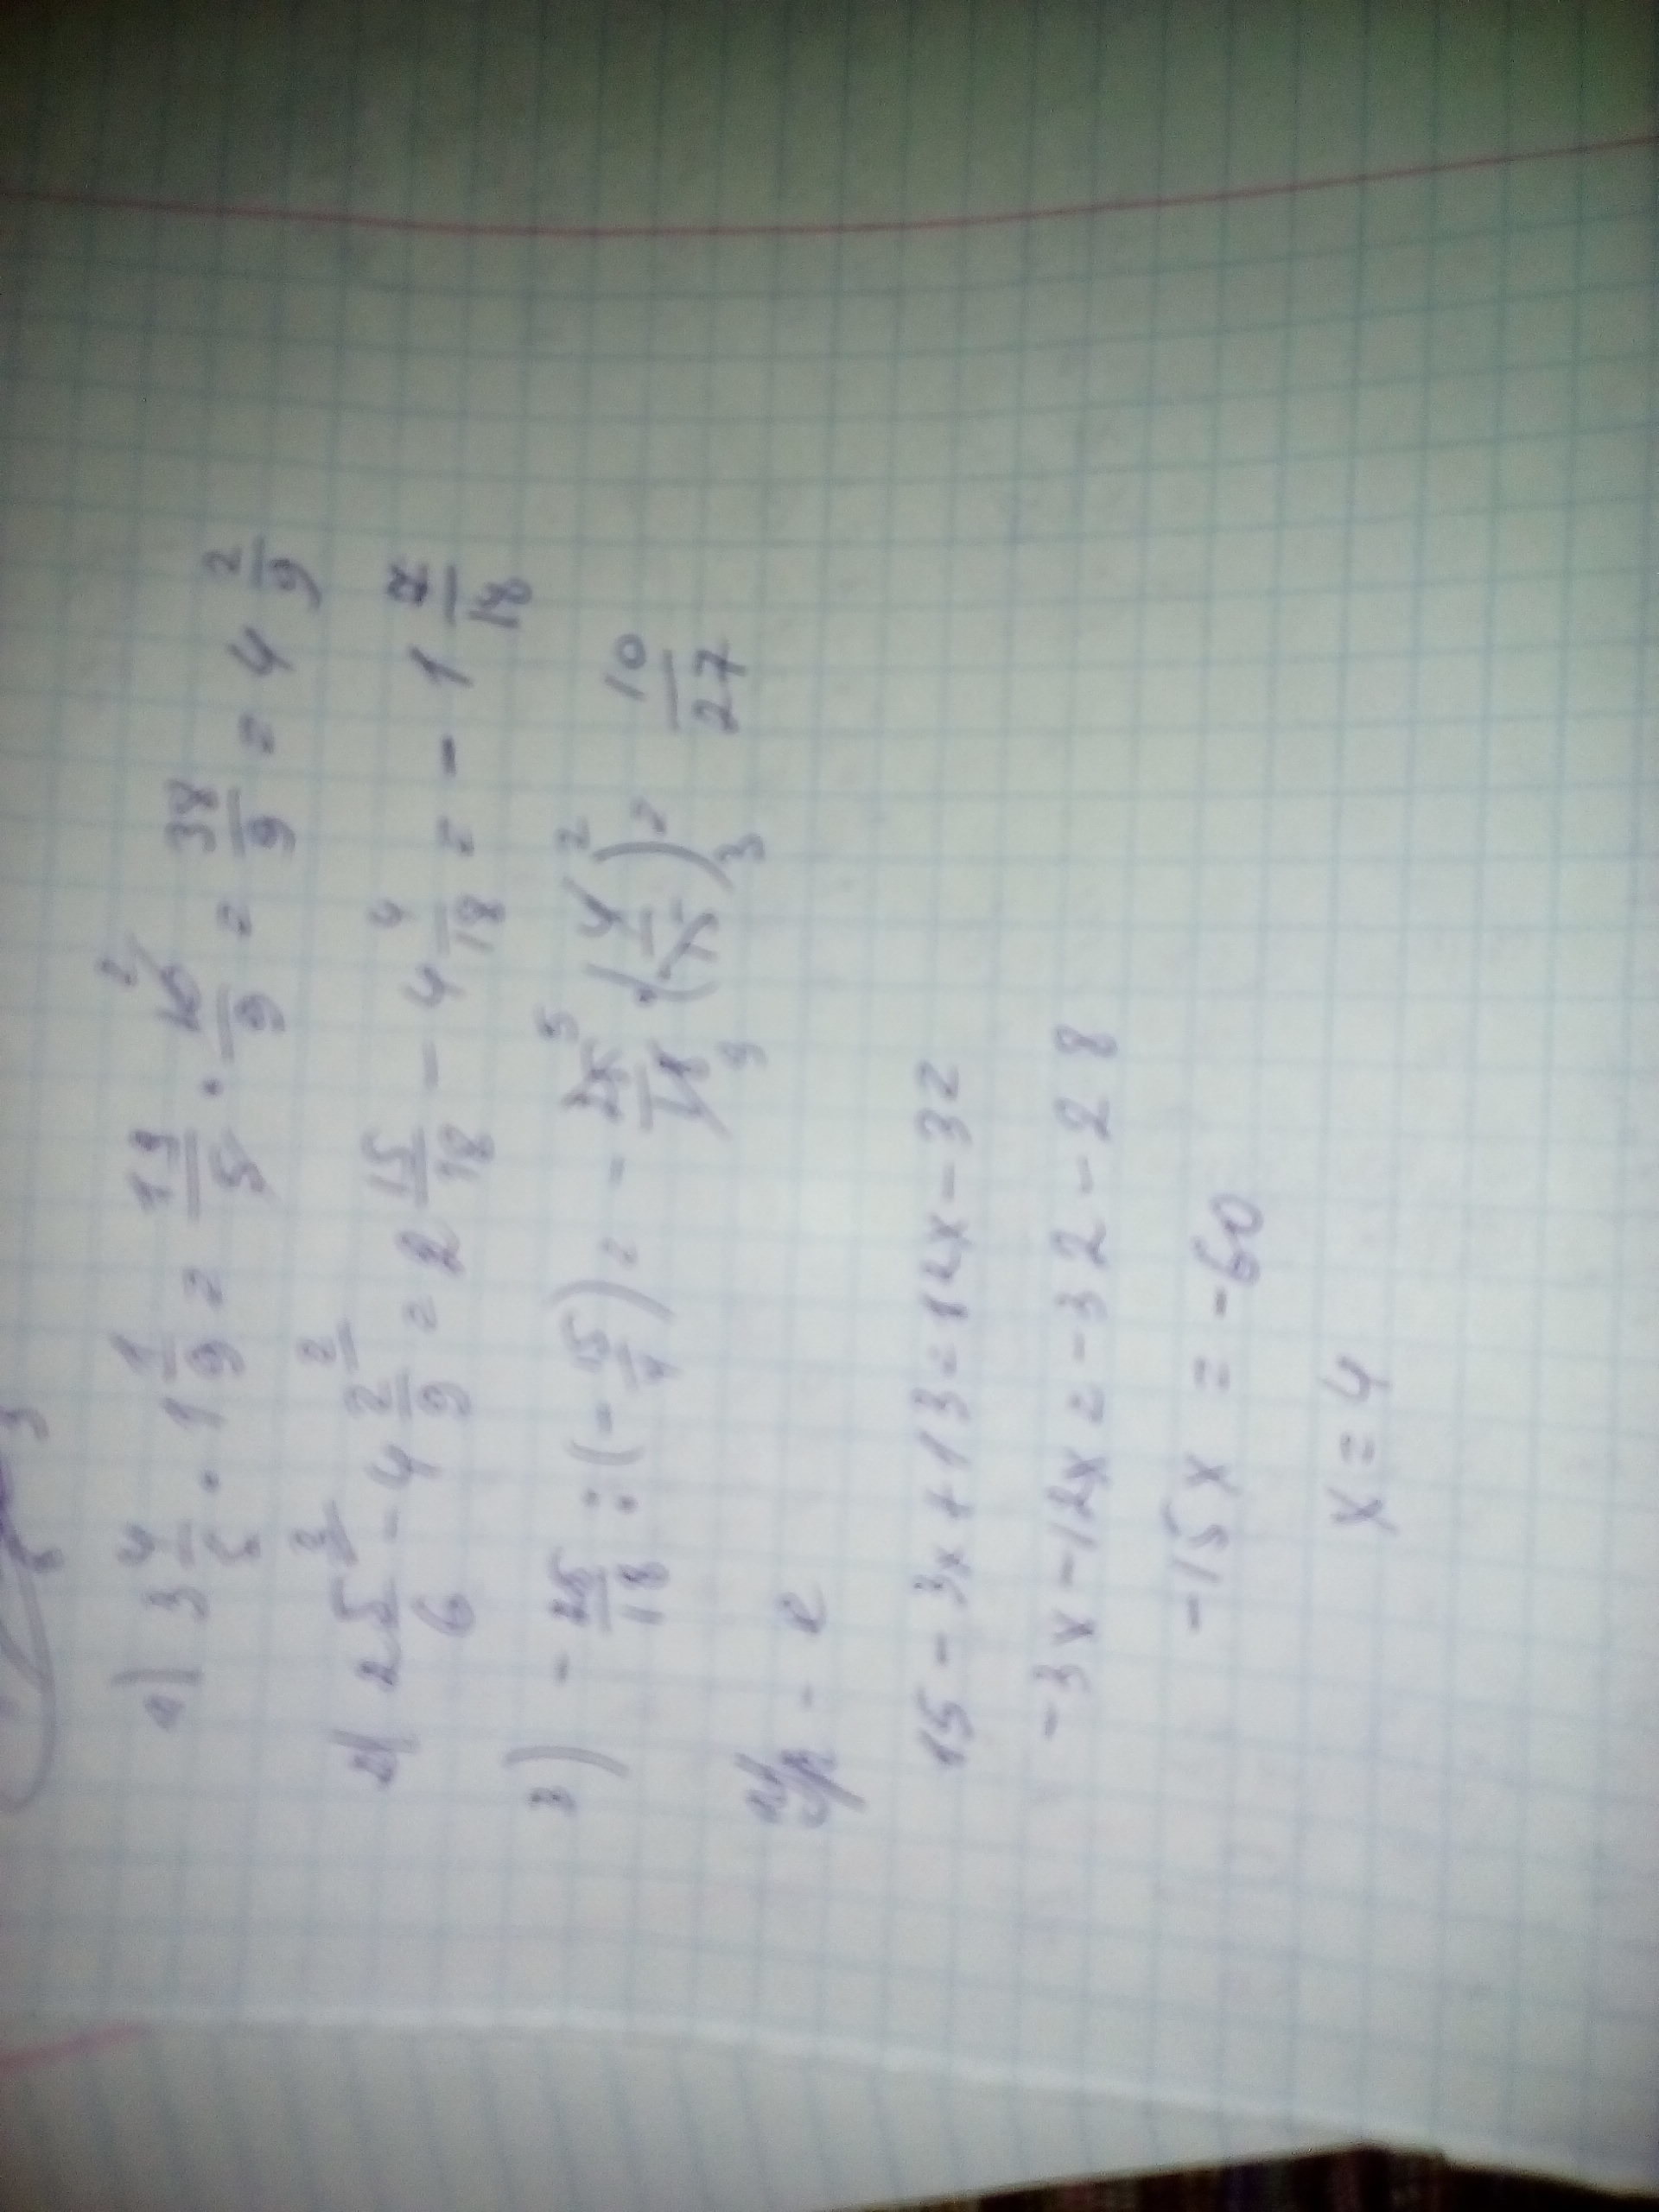 1) 3 4/5 · 1 1/9 = 19/5 · 10/9 = 38/9 = 4 2/9
2) 2 5/6 - 4 2/9 = 2 15/18 - 4 4/18 = - 1 7/18
3) - 25/18 : (- 15/4) = - 25/18 · (4/15) = 10/27
15 - 3x + 13 = 12x - 32
-3x - 12x = -32 - 28
-15x = -60
x = 4